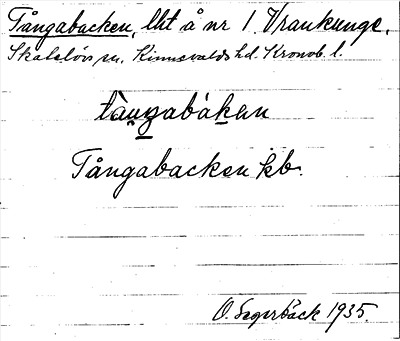 Tångabacken, lht å nr 1 Vrankunge,
Skatelövs sn. Kinnevalds hd. Kronob. l.
tàŋgabàkan
Tångabacken kb.
O. Segerbäck 1935.